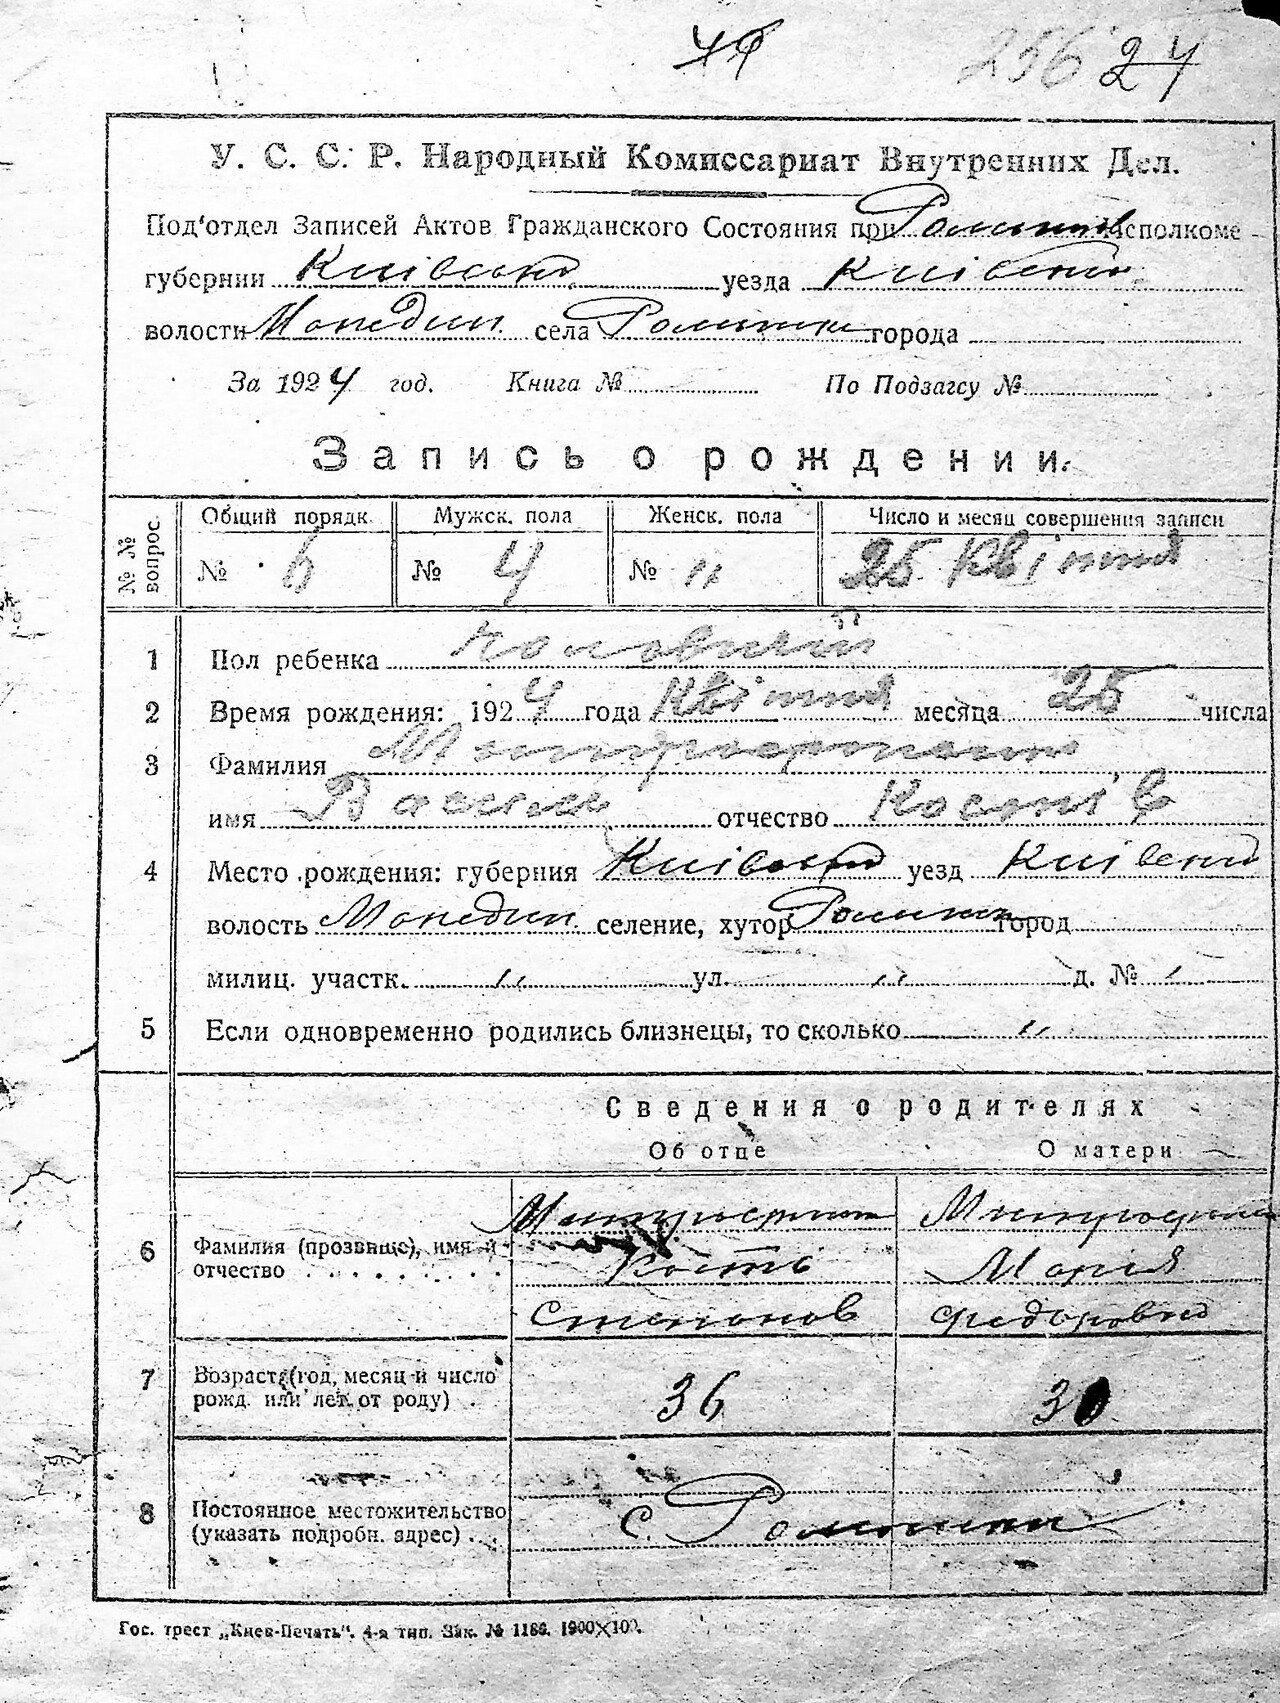 256 24
У. С. С. Р. Народный Комиссариат Внутренних Дел.
Под'отдел Записей Актов Гражданского Состояния при Исполкоме
губернии Київська уезда Київськ
волости села Ромашки города
За 1924 год. Книга № По Подзагсу №
Запись о рождении.
№№ вопрос. Общий порядк. Мужск. пола Женск. пола Число и месяц совершения записи
№ 6 № 4 № " 25 Квітня
1 Пол ребенка чоловичий
2 Время рождения: 1924 года Квітня месяца 25 числа
3 Фамилия
имя Василь отчество Костів
4 Место рождения: губерния Київська уезд Київськ
волость селение, хутор Ромашки город
милиц. участк. " ул. " д. №
5 Если одновременно родились близнецы, то сколько "
Сведения о родителях
Об отце О матери
6 Фамилия (прозвище), имя и отчество
Кость Мария
Степанов Федоровна
7 Возраст (год, месяц и число рожд. или лет от роду) 36
8 Постоянное местожительство (указать подробн. адрес) с. Ромашки
Гос. трест „Киев-Печать". 4-я тип. Зак. № 1186. 1900×100.